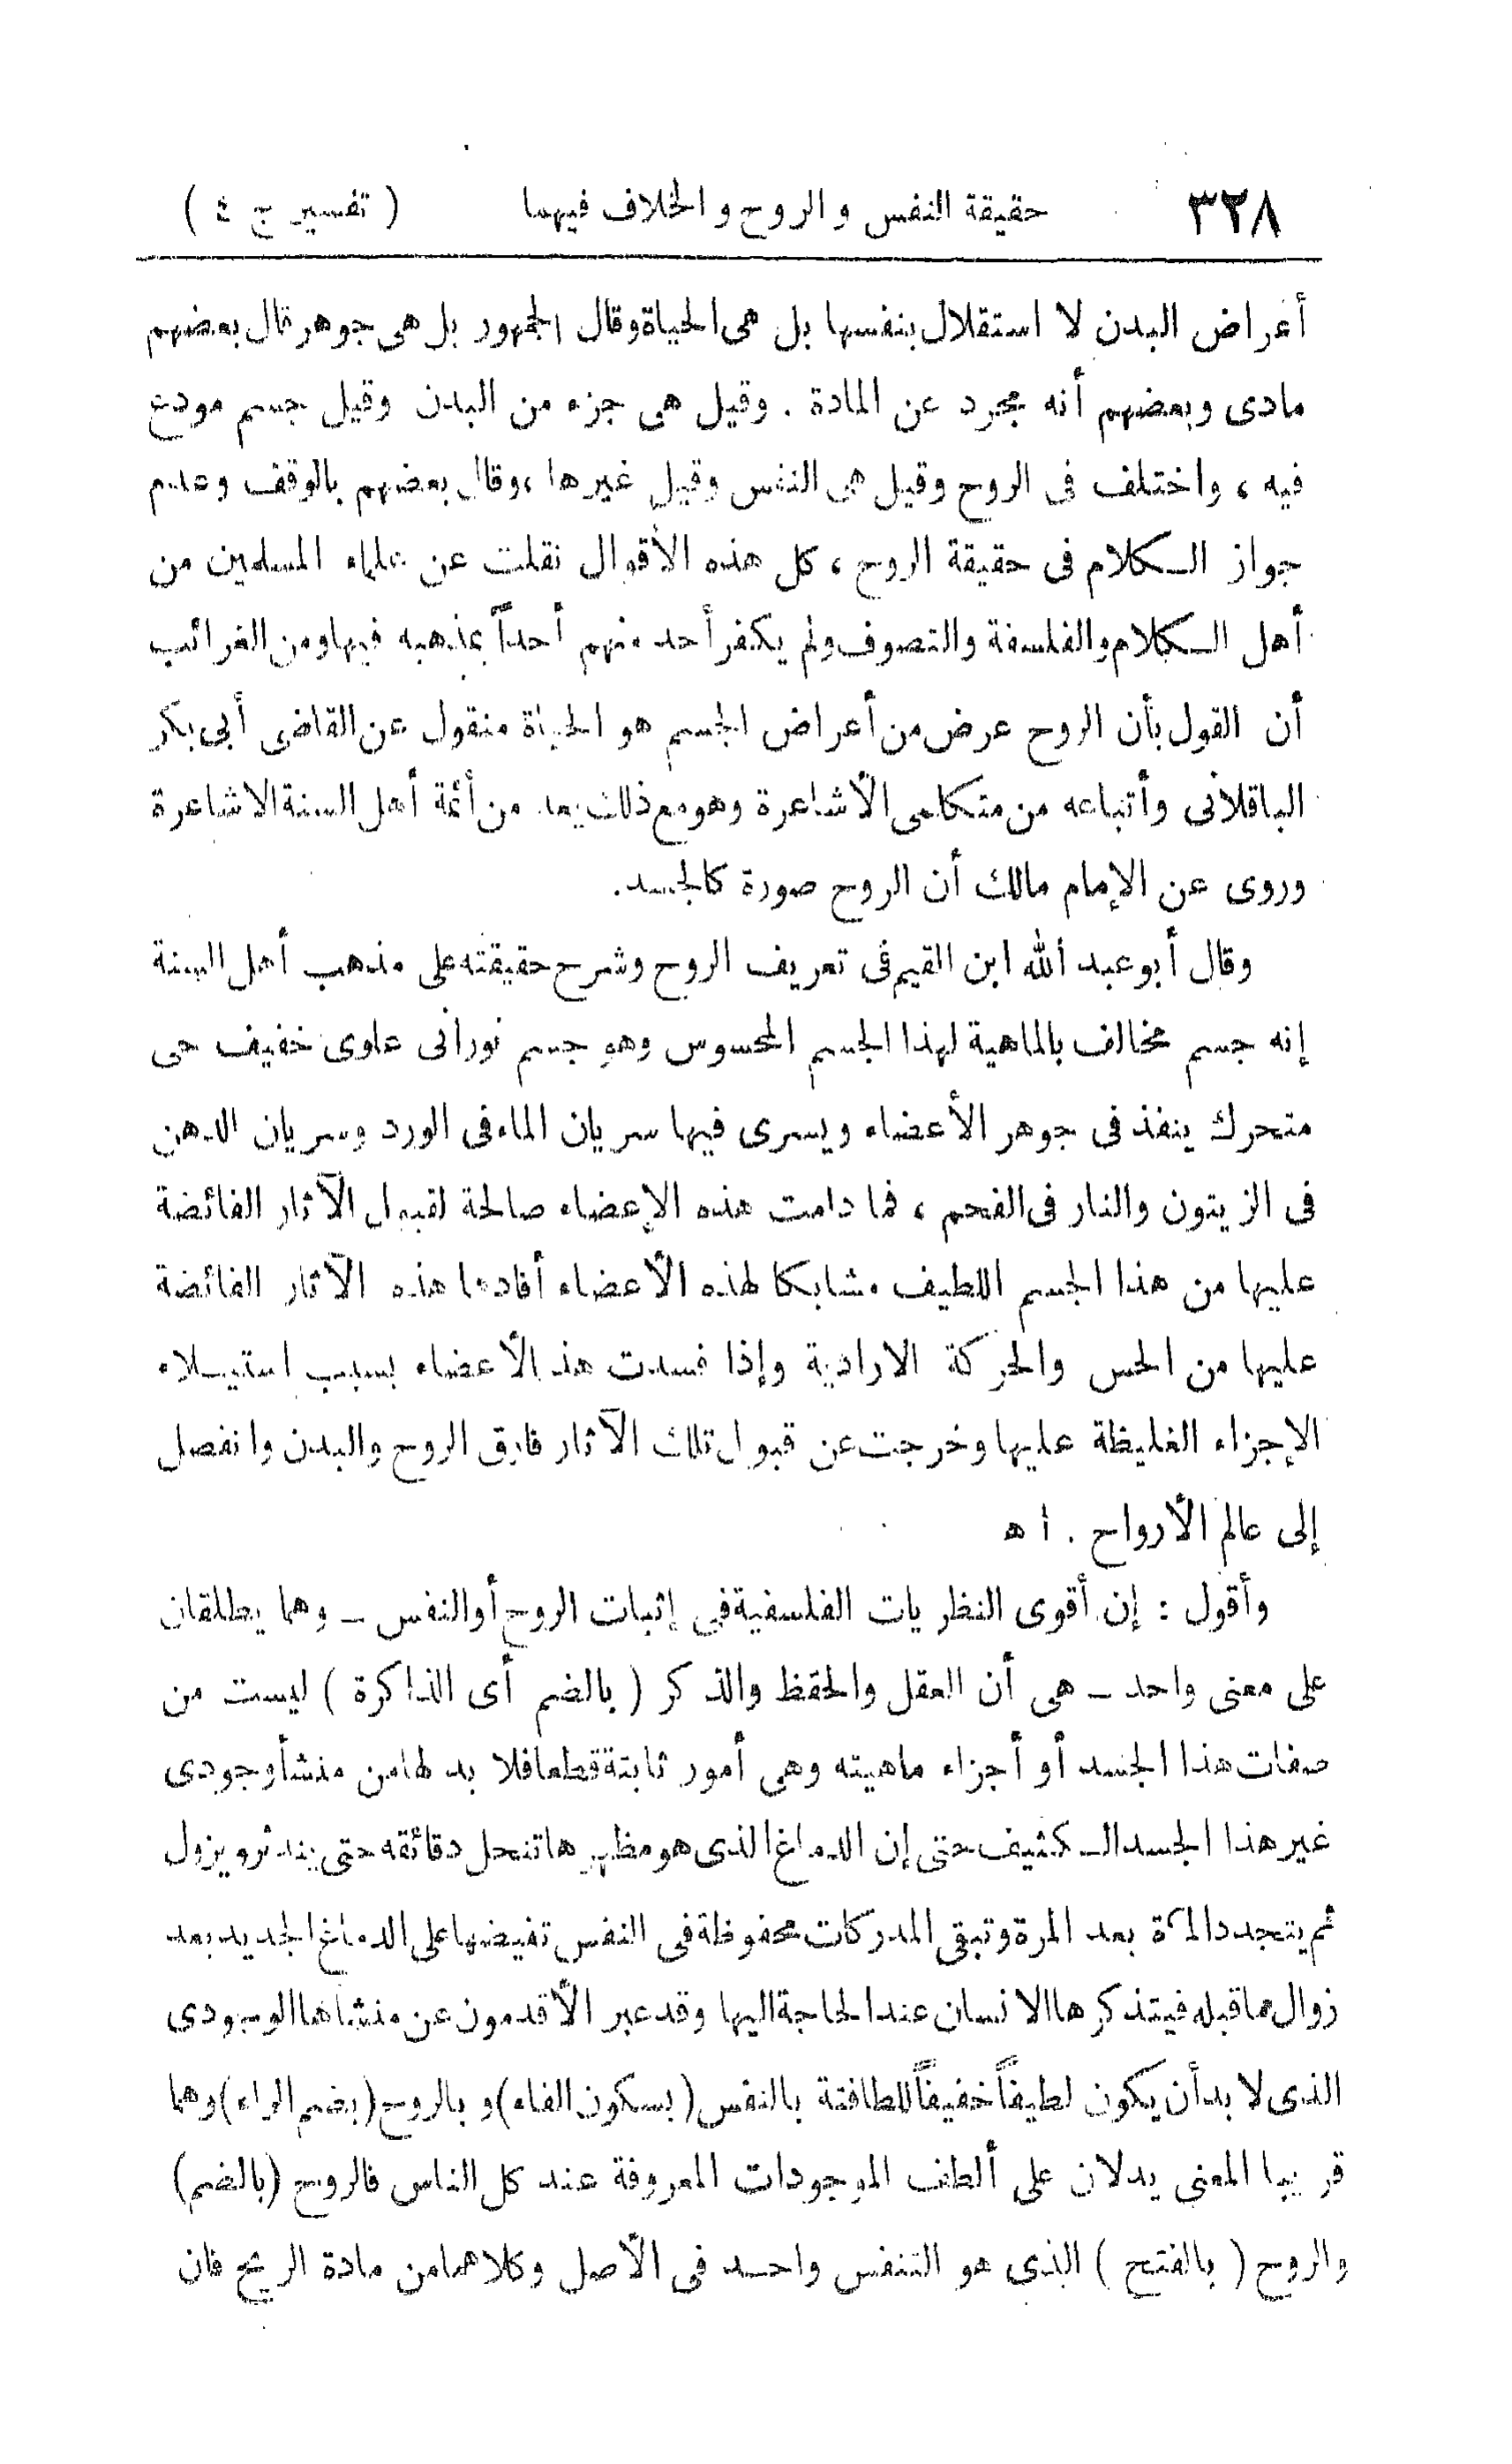 ٣٢٨ حقيقة النفس والروح والخلاف فيهما ( تفسير ج ٤ )
أعراض البدن لا استقلال بنفسها بل هى الحياة وقال الجمهور بل هى جوهر قال بعضهم
مادى وبعضهم أنه مجرد عن المادة . وقيل هى جزء من البدن وقيل جسم مودع
فيه ، واختلف فى الروح وقيل هى النفس وقيل غيرها ، وقال بعضهم بالوقف وعدم
جواز الكلام فى حقيقة الروح ، كل هذه الأقوال نقلت عن علماء المسلمين من
أهل الكلام والفلسفة والتصوف ولم يكفر أحد منهم أحداً بمذهبه فيها ومن الغرائب
أن القول بأن الروح عرض من أعراض الجسم هو الحياة منقول عن القاضى أبى بكر
الباقلانى وأتباعه من متكلمى الأشاعرة وهو مع ذلك يعد من أئمة أهل السنة الاشاعرة
وروى عن الإمام مالك أن الروح صورة كالجسد .
وقال أبو عبد الله ابن القيم فى تعريف الروح وشرح حقيقته على مذهب أهل السنة
إنه جسم مخالف بالماهية لهذا الجسم المحسوس وهو جسم نورانى علوى خفيف حى
متحرك ينفذ فى جوهر الأعضاء ويسرى فيها سريان الماء فى الورد وسريان الدهن
فى الزيتون والنار فى الفحم ، فما دامت هذه الإعضاء صالحة لقبول الآثار الفائضة
عليها من هذا الجسم اللطيف مشابكا لهذه الأعضاء أفادها هذه الآثار الفائضة
عليها من الحس والحركة الارادية وإذا فسدت هذ الأعضاء بسبب استيلاء
الإجزاء الغليظة عليها وخرجت عن قبول تلك الآثار فارق الروح والبدن وانفصل
إلى عالم الأرواح . ا ه
وأقول : إن أقوى النظريات الفلسفية فى إثبات الروح أو النفس ــ وهما يطلقان
على معنى واحد ــ هى أن العقل والحفظ والذكر ( بالضم أى الذاكرة ) ليست من
صفات هذا الجسد أو أجزاء ماهيته وهى أمور ثابتة قطعا فلا بد لها من منشأ وجودى
غير هذا الجسد الكثيف حتى إن الدماغ الذى هو مظهرها تنحل دقائقه حتى يندثر ويزول
ثم يتجدد المرة بعد المرة وتبقى المدركات محفوظة فى النفس تفيضها على الدماغ الجديد بعد
زوال ما قبله فيتذكرها الانسان عند الحاجة اليها وقد عبر الأقدمون عن منشاها الوجودى
الذى لا بد أن يكون لطيفاً خفيفاً للطافتة بالنفس ( بسكون الفاء ) و بالروح ( بضم الراء ) وهما
قريبا المعنى يدلان على ألطف الموجودات المعروفة عند كل الناس فالروح ( بالضم )
والروح ( بالفتح ) الذى هو التنفس واحد فى الأصل وكلاهما من مادة الريح فان